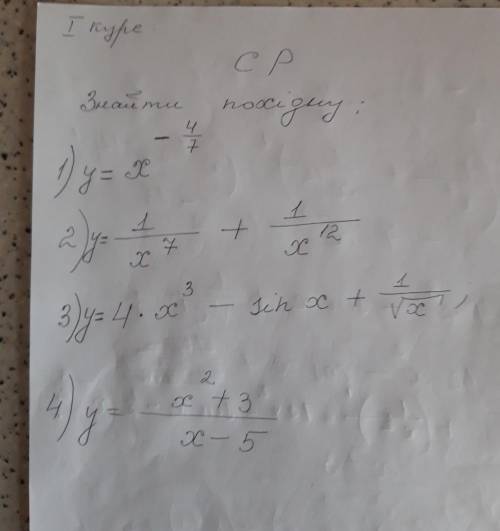 I курс
СР
Знайти похідну:
1) y = x^(-4/7)
2) y = 1/x^7 + 1/x^12
3) y = 4 · x^3 - sin x + 1/√x ,
4) y = (x^2 + 3)/(x - 5)